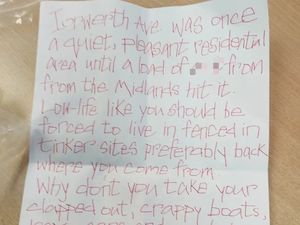 Iorwerth Ave was once
a quiet, pleasant residential
area until a load of from
from the Midlands hit it.
Low-life like you should be
forced to live in fenced in
tinker sites preferably back
where you come from.
Why don't you take your
clapped out, crappy boats,